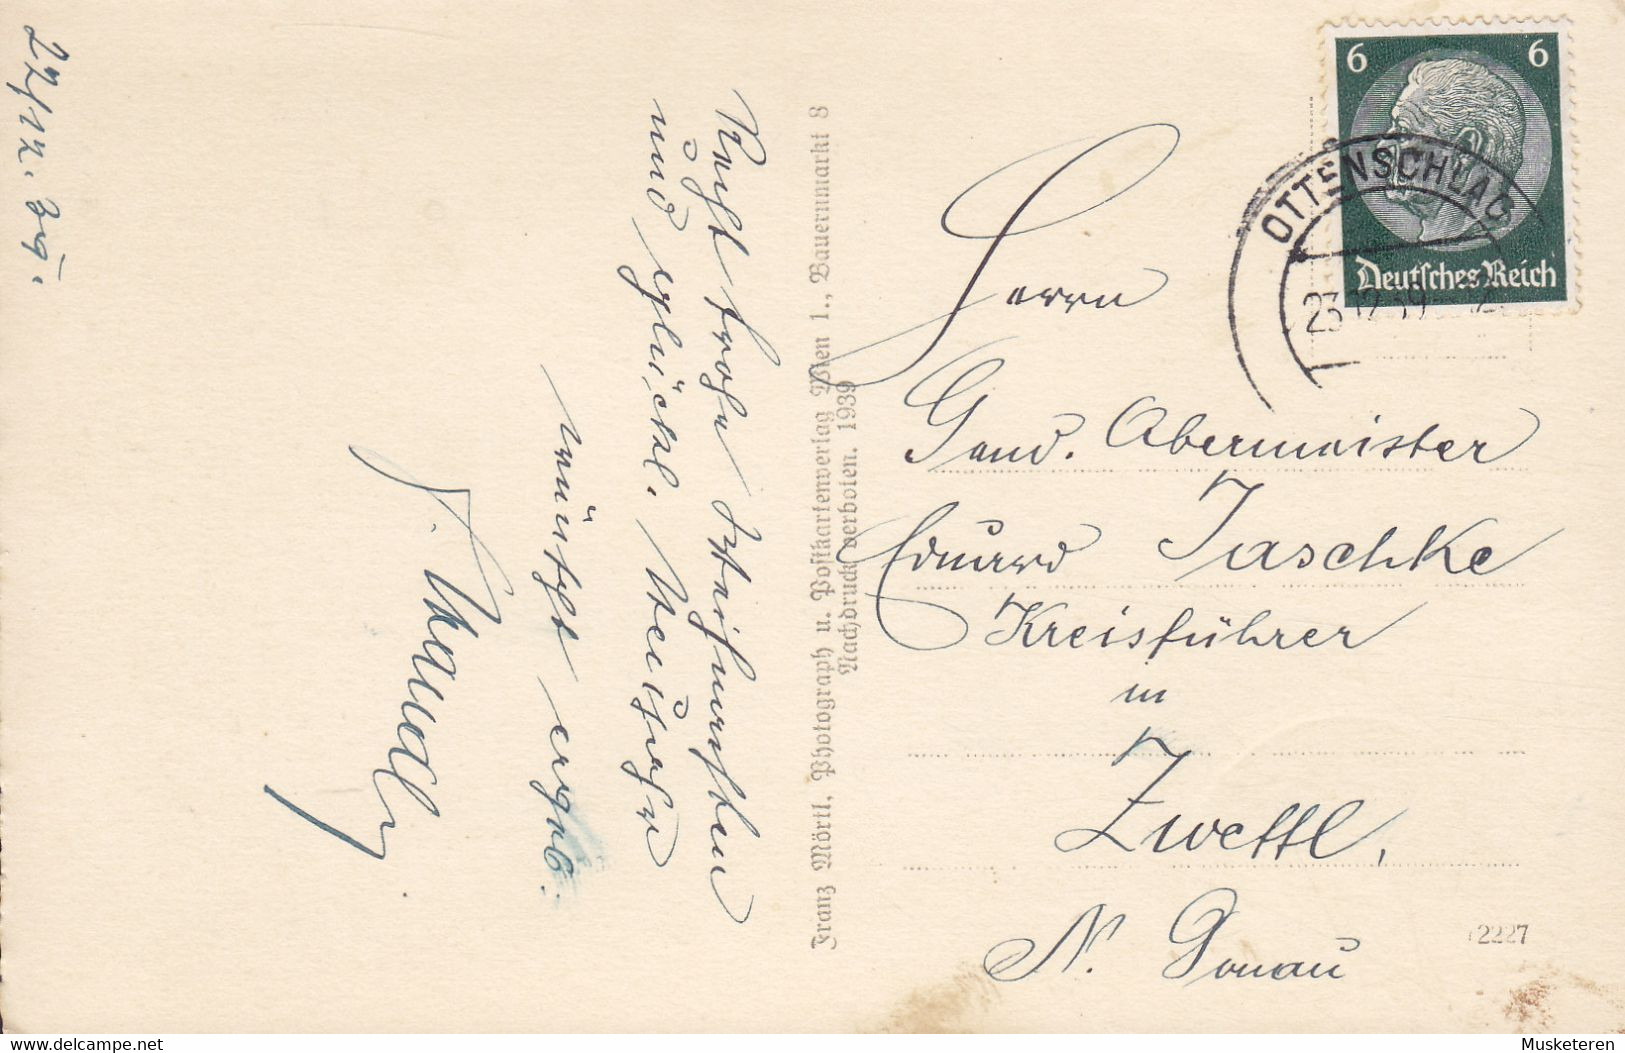 22/12. 39.
Recht frohe Weihnachten
und glückl. Neujahr
wünscht ergeb.
Franz Mörtl, Photograph u. Postkartenverlag Wien 1., Bauernmarkt 8
Nachdruck verboten. 1939
6 6
Deutsches Reich
OTTENSCHLAG
23.12.39
Herrn
Gend. Obermeister
Eduard Jaschke
Kreisführer
in
Zwettl,
N. Donau
12227
delcampe.net
Musketeren